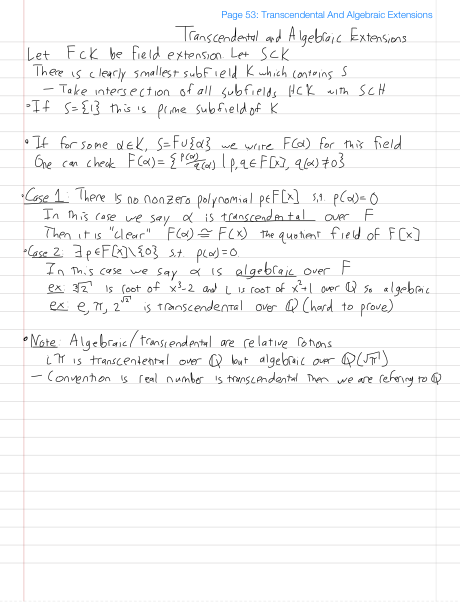 Page 53: Transcendental And Algebraic Extensions
Transcendental and Algebraic Extensions
Let F⊂K be field extension Let S⊂K
There is clearly smallest subfield K which contains S
– Take intersection of all subfields H⊂K with S⊂H
• If S={1} this is prime subfield of K
• If for some α∈K, S=F∪{α} we write F(α) for this field
One can check F(α)={p(α)/q(α) | p,q∈F[x], q(α)≠0}
• Case 1: There is no nonzero polynomial p∈F[x] s.t. p(α)=0
In this case we say α is transcendental over F
Then it is "clear" F(α)≅F(x) the quotient field of F[x]
• Case 2: ∃p∈F[x]\{0} s.t. p(α)=0
In this case we say α is algebraic over F
ex: ∛2 is root of x³-2 and i is root of x²+1 over ℚ so algebraic
ex: e, π, 2^√2 is transcendental over ℚ (hard to prove)
• Note: Algebraic/transcendental are relative notions
π is transcendental over ℚ but algebraic over ℚ(√π)
– Convention is real number is transcendental then we are refering to ℚ